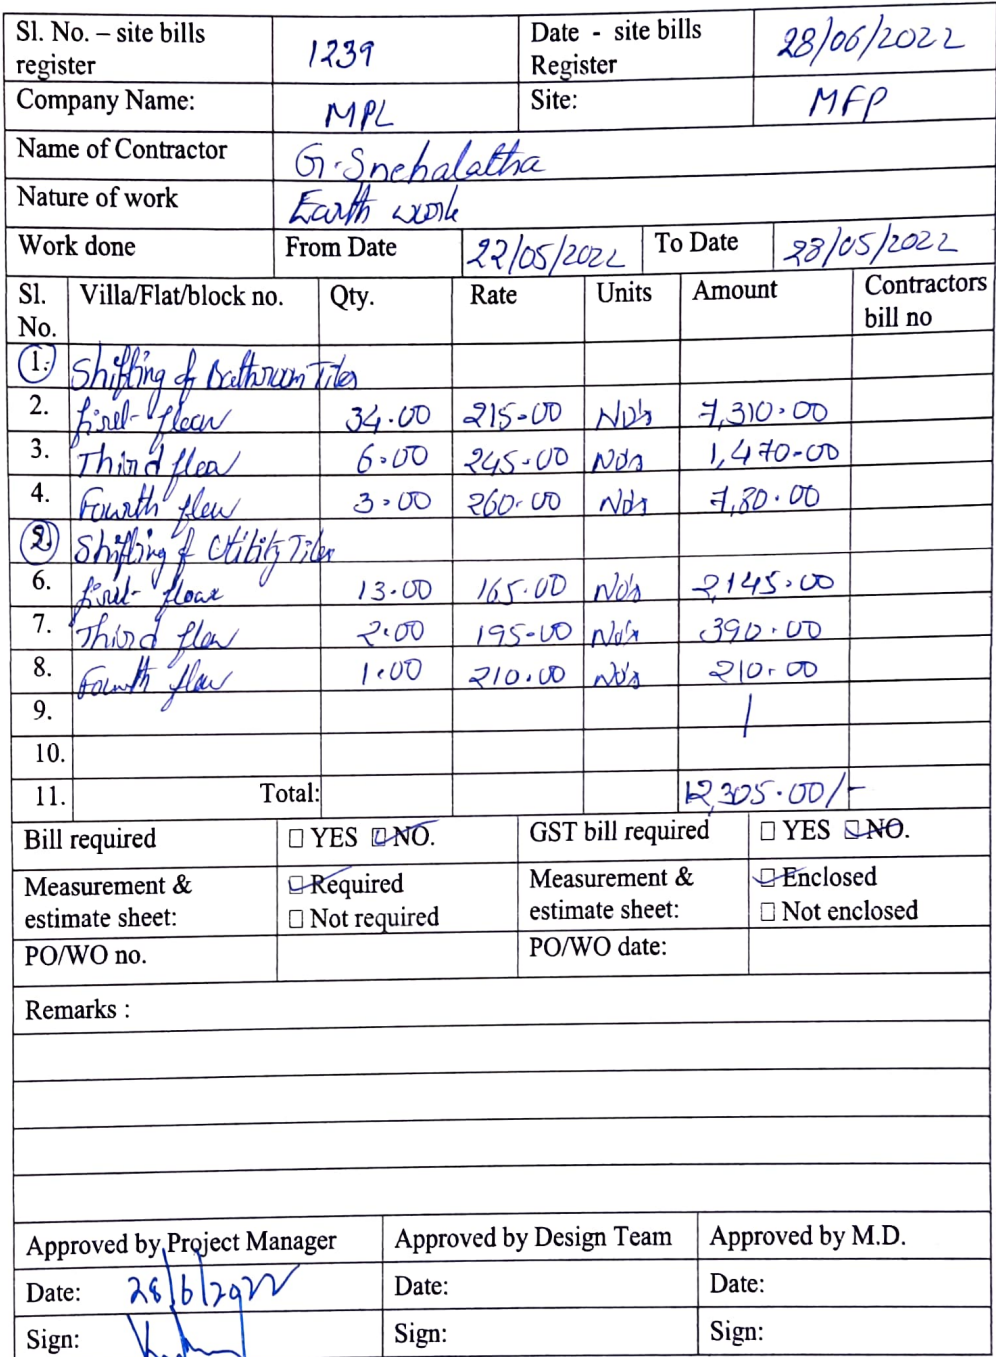 Sl. No. – site bills register 1239 Date - site bills Register 28/06/2022
Company Name: MPL Site: MFP
Name of Contractor G. Snehalatha
Nature of work Earth work
Work done From Date 22/05/2022 To Date 28/05/2022
Sl. No. Villa/Flat/block no. Qty. Rate Units Amount Contractors bill no
1. Shifting of Bathroom Tiles
2. first floor 34.00 215.00 No's 7,310.00
3. Third floor 6.00 245.00 No's 1,470.00
4. Fourth floor 3.00 260.00 No's 7,80.00
2. Shifting of Utility Tiles
6. first floor 13.00 165.00 No's 2,145.00
7. Third floor 2.00 195.00 No's 390.00
8. Fourth floor 1.00 210.00 No's 210.00
9.
10.
11. Total: 12,305.00/-
Bill required □ YES □ NO. GST bill required □ YES □ NO.
Measurement & estimate sheet: □ Required □ Not required Measurement & estimate sheet: □ Enclosed □ Not enclosed
PO/WO no. PO/WO date:
Remarks :
Approved by Project Manager Approved by Design Team Approved by M.D.
Date: 28/6/2022 Date: Date:
Sign: Sign: Sign: